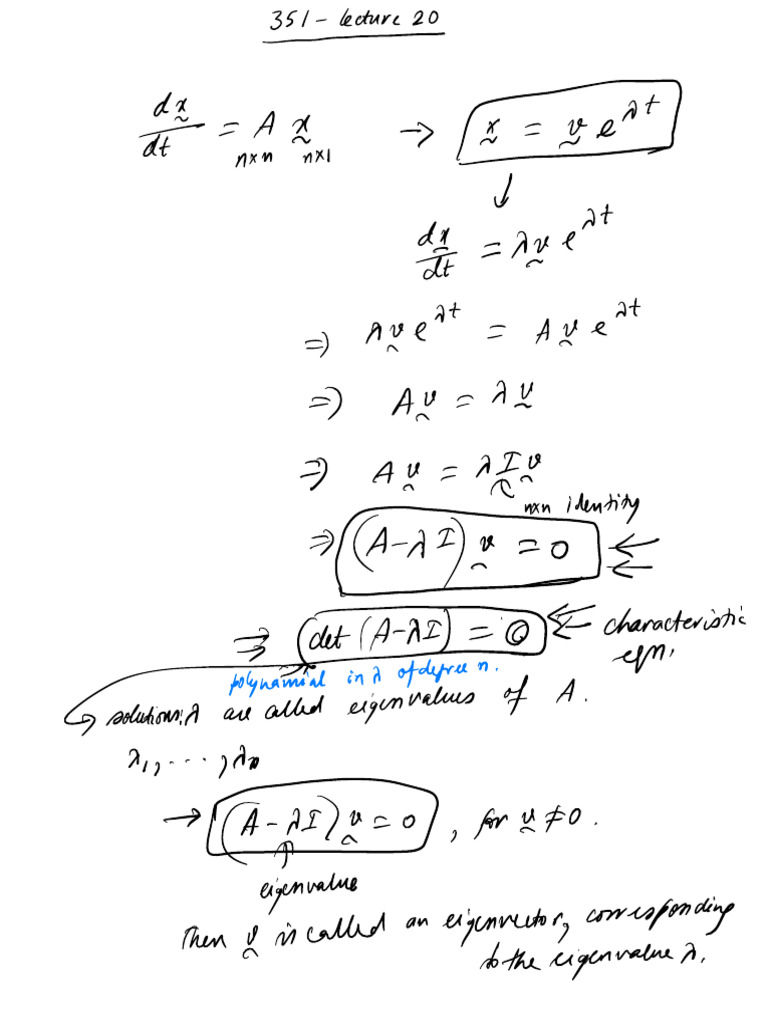 351 - lecture 20
dx/dt = A x → x = v e^λt
n×n n×1
↓
dx/dt = λ v e^λt
⇒ λ v e^λt = A v e^λt
⇒ A v = λ v
⇒ A v = λ I v
n×n identity
⇒ (A - λI) v = 0 ⇐
⇒ det (A - λI) = 0 ⇐ characteristic
eqn.
polynomial in λ of degree n.
solutions: λ are called eigenvalues of A.
λ1, ..., λn
→ (A - λI) v = 0, for v ≠ 0.
↑
eigenvalue
Then v is called an eigenvector, corresponding
to the eigenvalue λ.